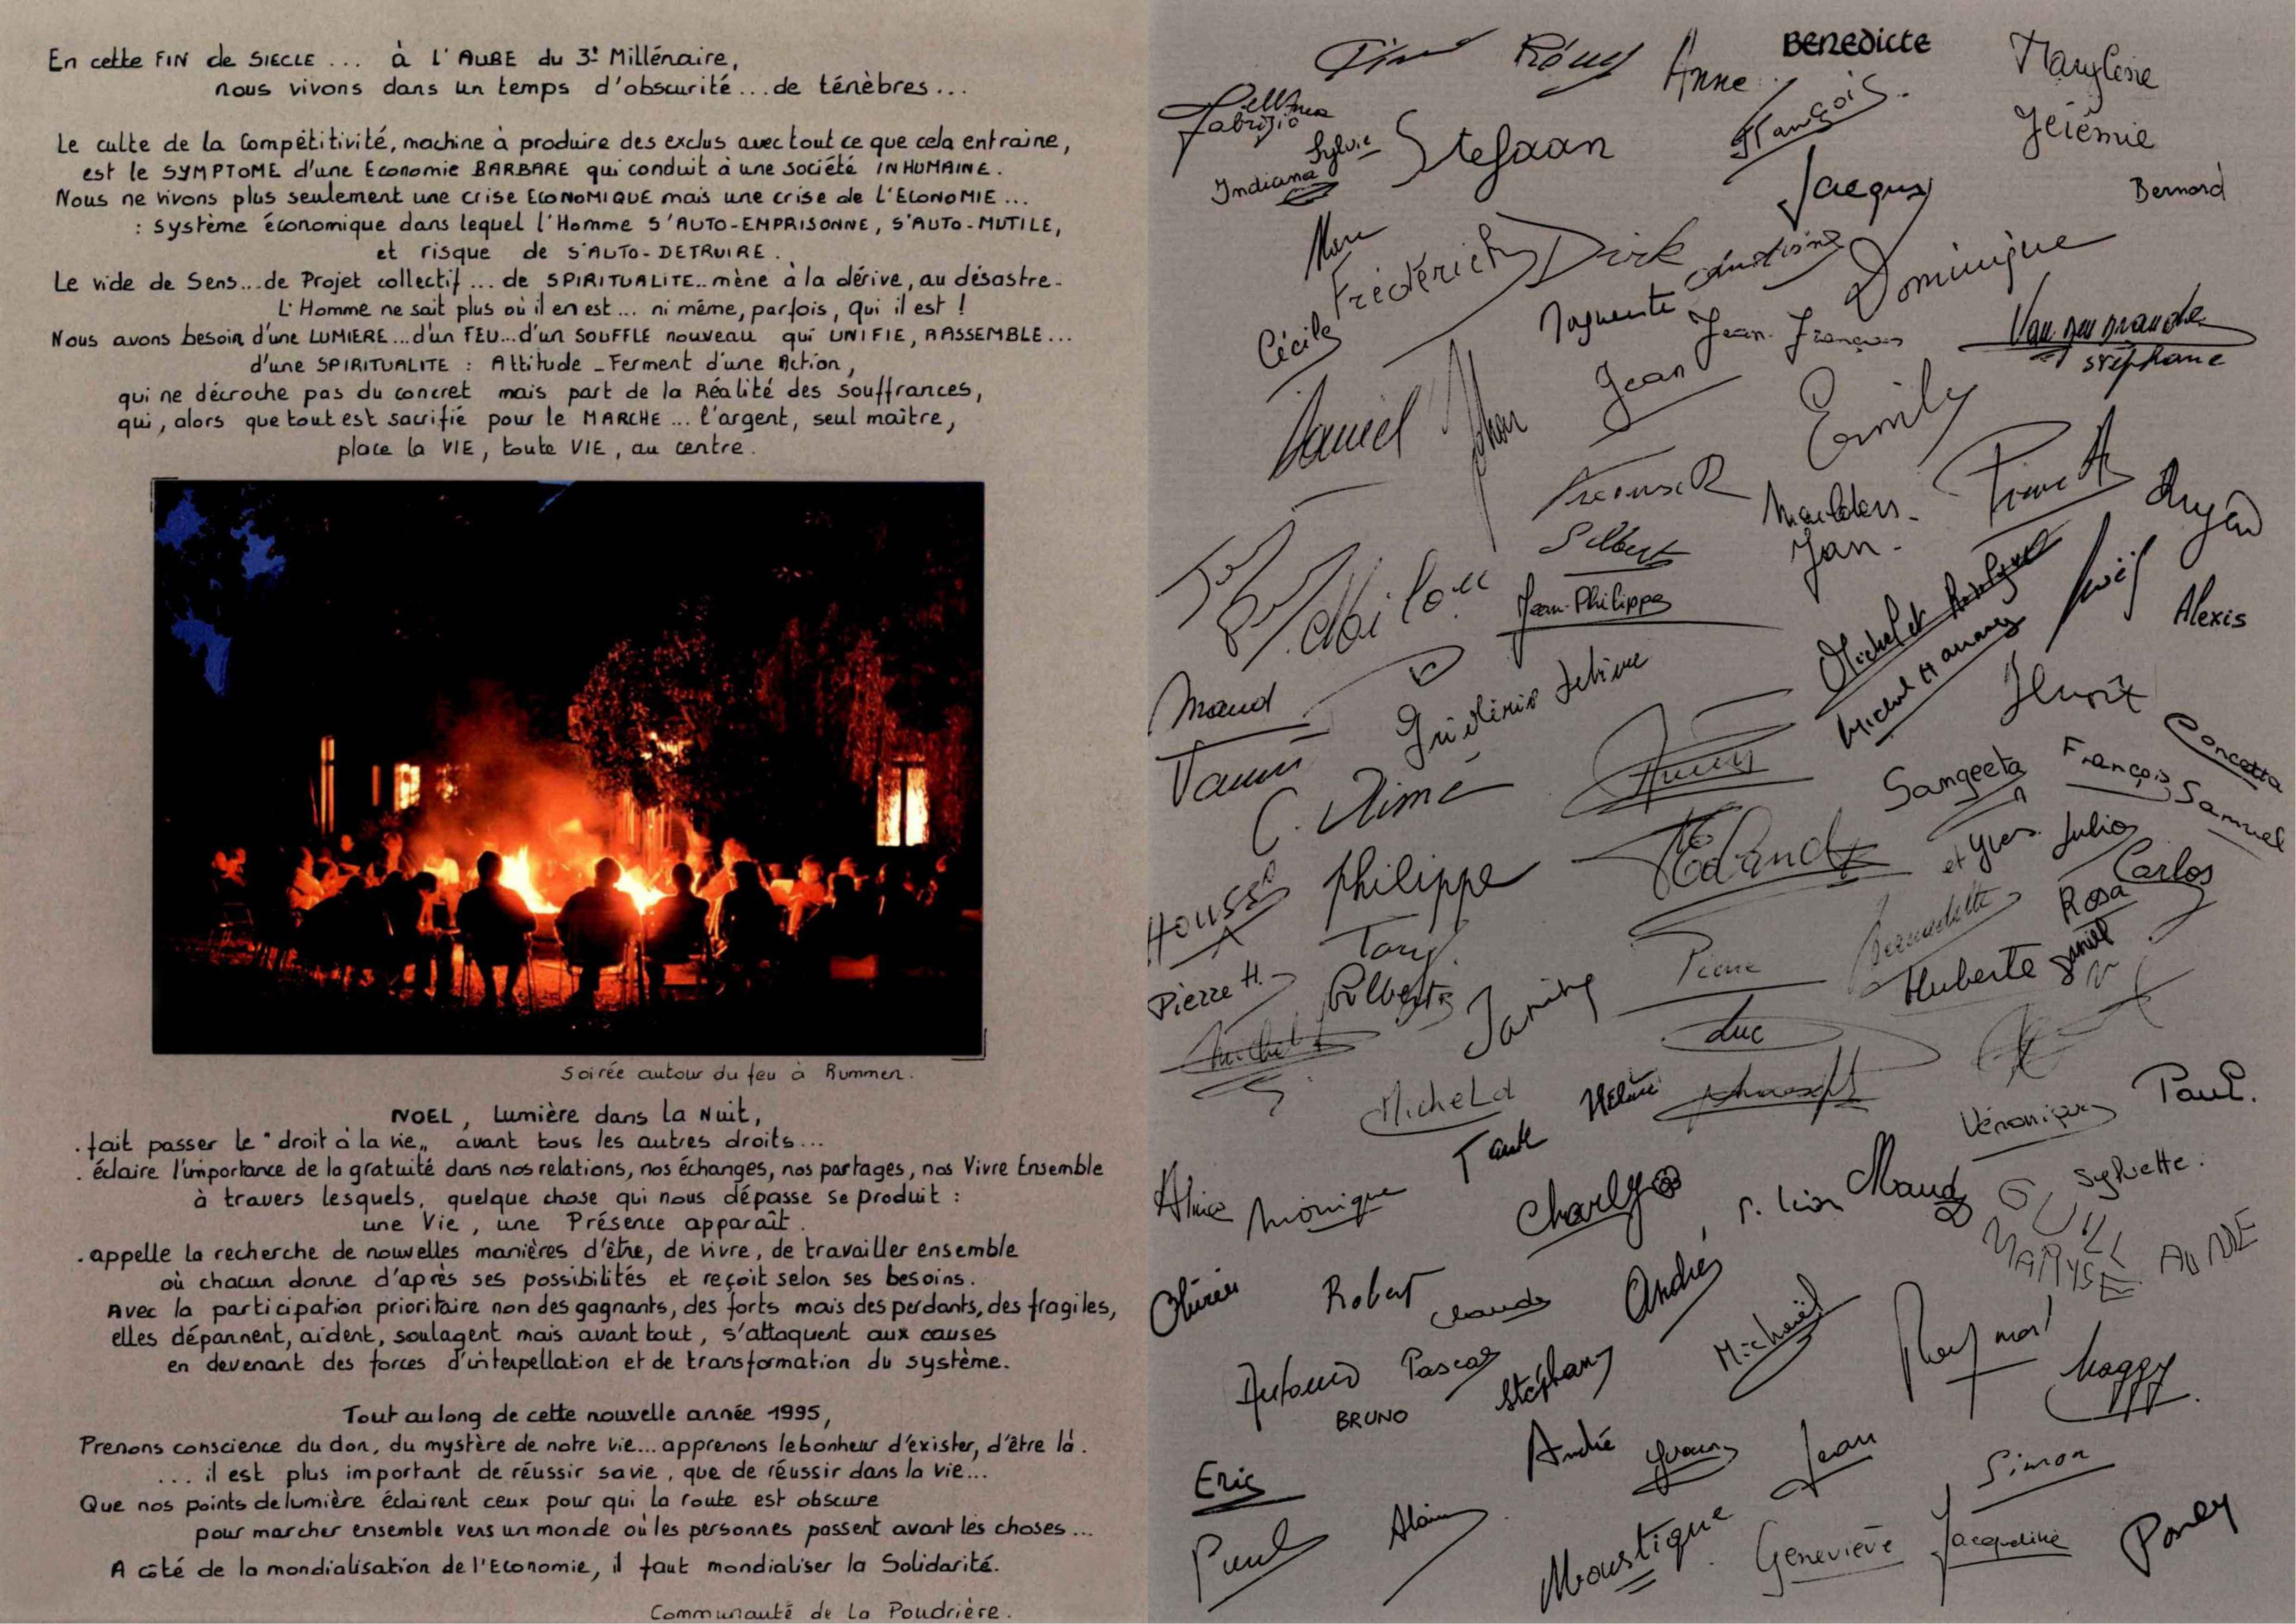 En cette FIN de SIECLE ... à L'AUBE du 3e Millénaire,
nous vivons dans un temps d'obscurité ... de ténèbres ...
Le culte de la Compétitivité, machine à produire des exclus avec tout ce que cela entraine,
est le SYMPTOME d'une Economie BARBARE qui conduit à une société INHUMAINE.
Nous ne vivons plus seulement une crise ECONOMIQUE mais une crise de l'ECONOMIE ...
: système économique dans lequel l'Homme S'AUTO-EMPRISONNE, S'AUTO-MUTILE,
et risque de S'AUTO-DETRUIRE.
Le vide de Sens ... de Projet collectif ... de SPIRITUALITE .. mène à la dérive, au désastre.
L'Homme ne sait plus où il en est ... ni même, parfois, qui il est !
Nous avons besoin d'une LUMIERE ... d'un FEU ... d'un SOUFFLE nouveau qui UNIFIE, RASSEMBLE ...
d'une SPIRITUALITE : Attitude - Ferment d'une Action,
qui ne décroche pas du concret mais part de la Réalité des souffrances,
qui, alors que tout est sacrifié pour le MARCHE ... l'argent, seul maître,
place la VIE, toute VIE, au centre.
Soirée autour du feu à Rummen.
NOEL, Lumière dans la Nuit,
. fait passer le "droit à la vie" avant tous les autres droits ...
. éclaire l'importance de la gratuité dans nos relations, nos échanges, nos partages, nos Vivre Ensemble
à travers lesquels, quelque chose qui nous dépasse se produit :
une Vie, une Présence apparaît.
. appelle la recherche de nouvelles manières d'être, de vivre, de travailler ensemble
où chacun donne d'après ses possibilités et reçoit selon ses besoins.
Avec la participation prioritaire non des gagnants, des forts mais des perdants, des fragiles,
elles dépannent, aident, soulagent mais avant tout, s'attaquent aux causes
en devenant des forces d'interpellation et de transformation du système.
Tout au long de cette nouvelle année 1995,
Prenons conscience du don, du mystère de notre vie ... apprenons le bonheur d'exister, d'être là.
... il est plus important de réussir sa vie, que de réussir dans la vie ...
Que nos points de lumière éclairent ceux pour qui la route est obscure
pour marcher ensemble vers un monde où les personnes passent avant les choses ...
A côté de la mondialisation de l'Economie, il faut mondialiser la Solidarité.
Communauté de La Poudrière.
Rémy
Anne
BENEDICTE
Marylène
Fabrizio
Sylvie
Stefaan
François
Jérémie
Indiana
Jacques
Bernard
Marc
Frédérich
Dirk
Dominique
Cécile
Jean-François
Stéphane
Daniel
Johan
Jean
Emily
Jan
Jean-Philippe
Alexis
Maud
C. Aimé
Sangeeta
François
Concetta
Samuel
et Yves
Julio
Philippe
Carlos
Rosa
Bernadette
Huberte
Daniel
Pierre H.
Pierre
Luc
Michel d
Hélène
Véronique
Paul.
Monique
Charly
Maud
Sylvette.
GUILLAUME
MARYSE
Olivier
Robert
Claude
André
Michaël
Antonio
Pascal
Stéphany
Maggy
BRUNO
André
Yvan
Jean
Eric
Simon
Paul
Alain
Moustique
Geneviève
Jacqueline